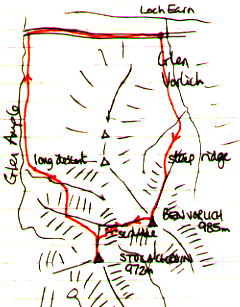 Loch Earn
Glen
Vorlich
Glen Ample
long descent
steep ridge
BEN VORLICH
985m
scramble
STUC A'CHROIN
972m